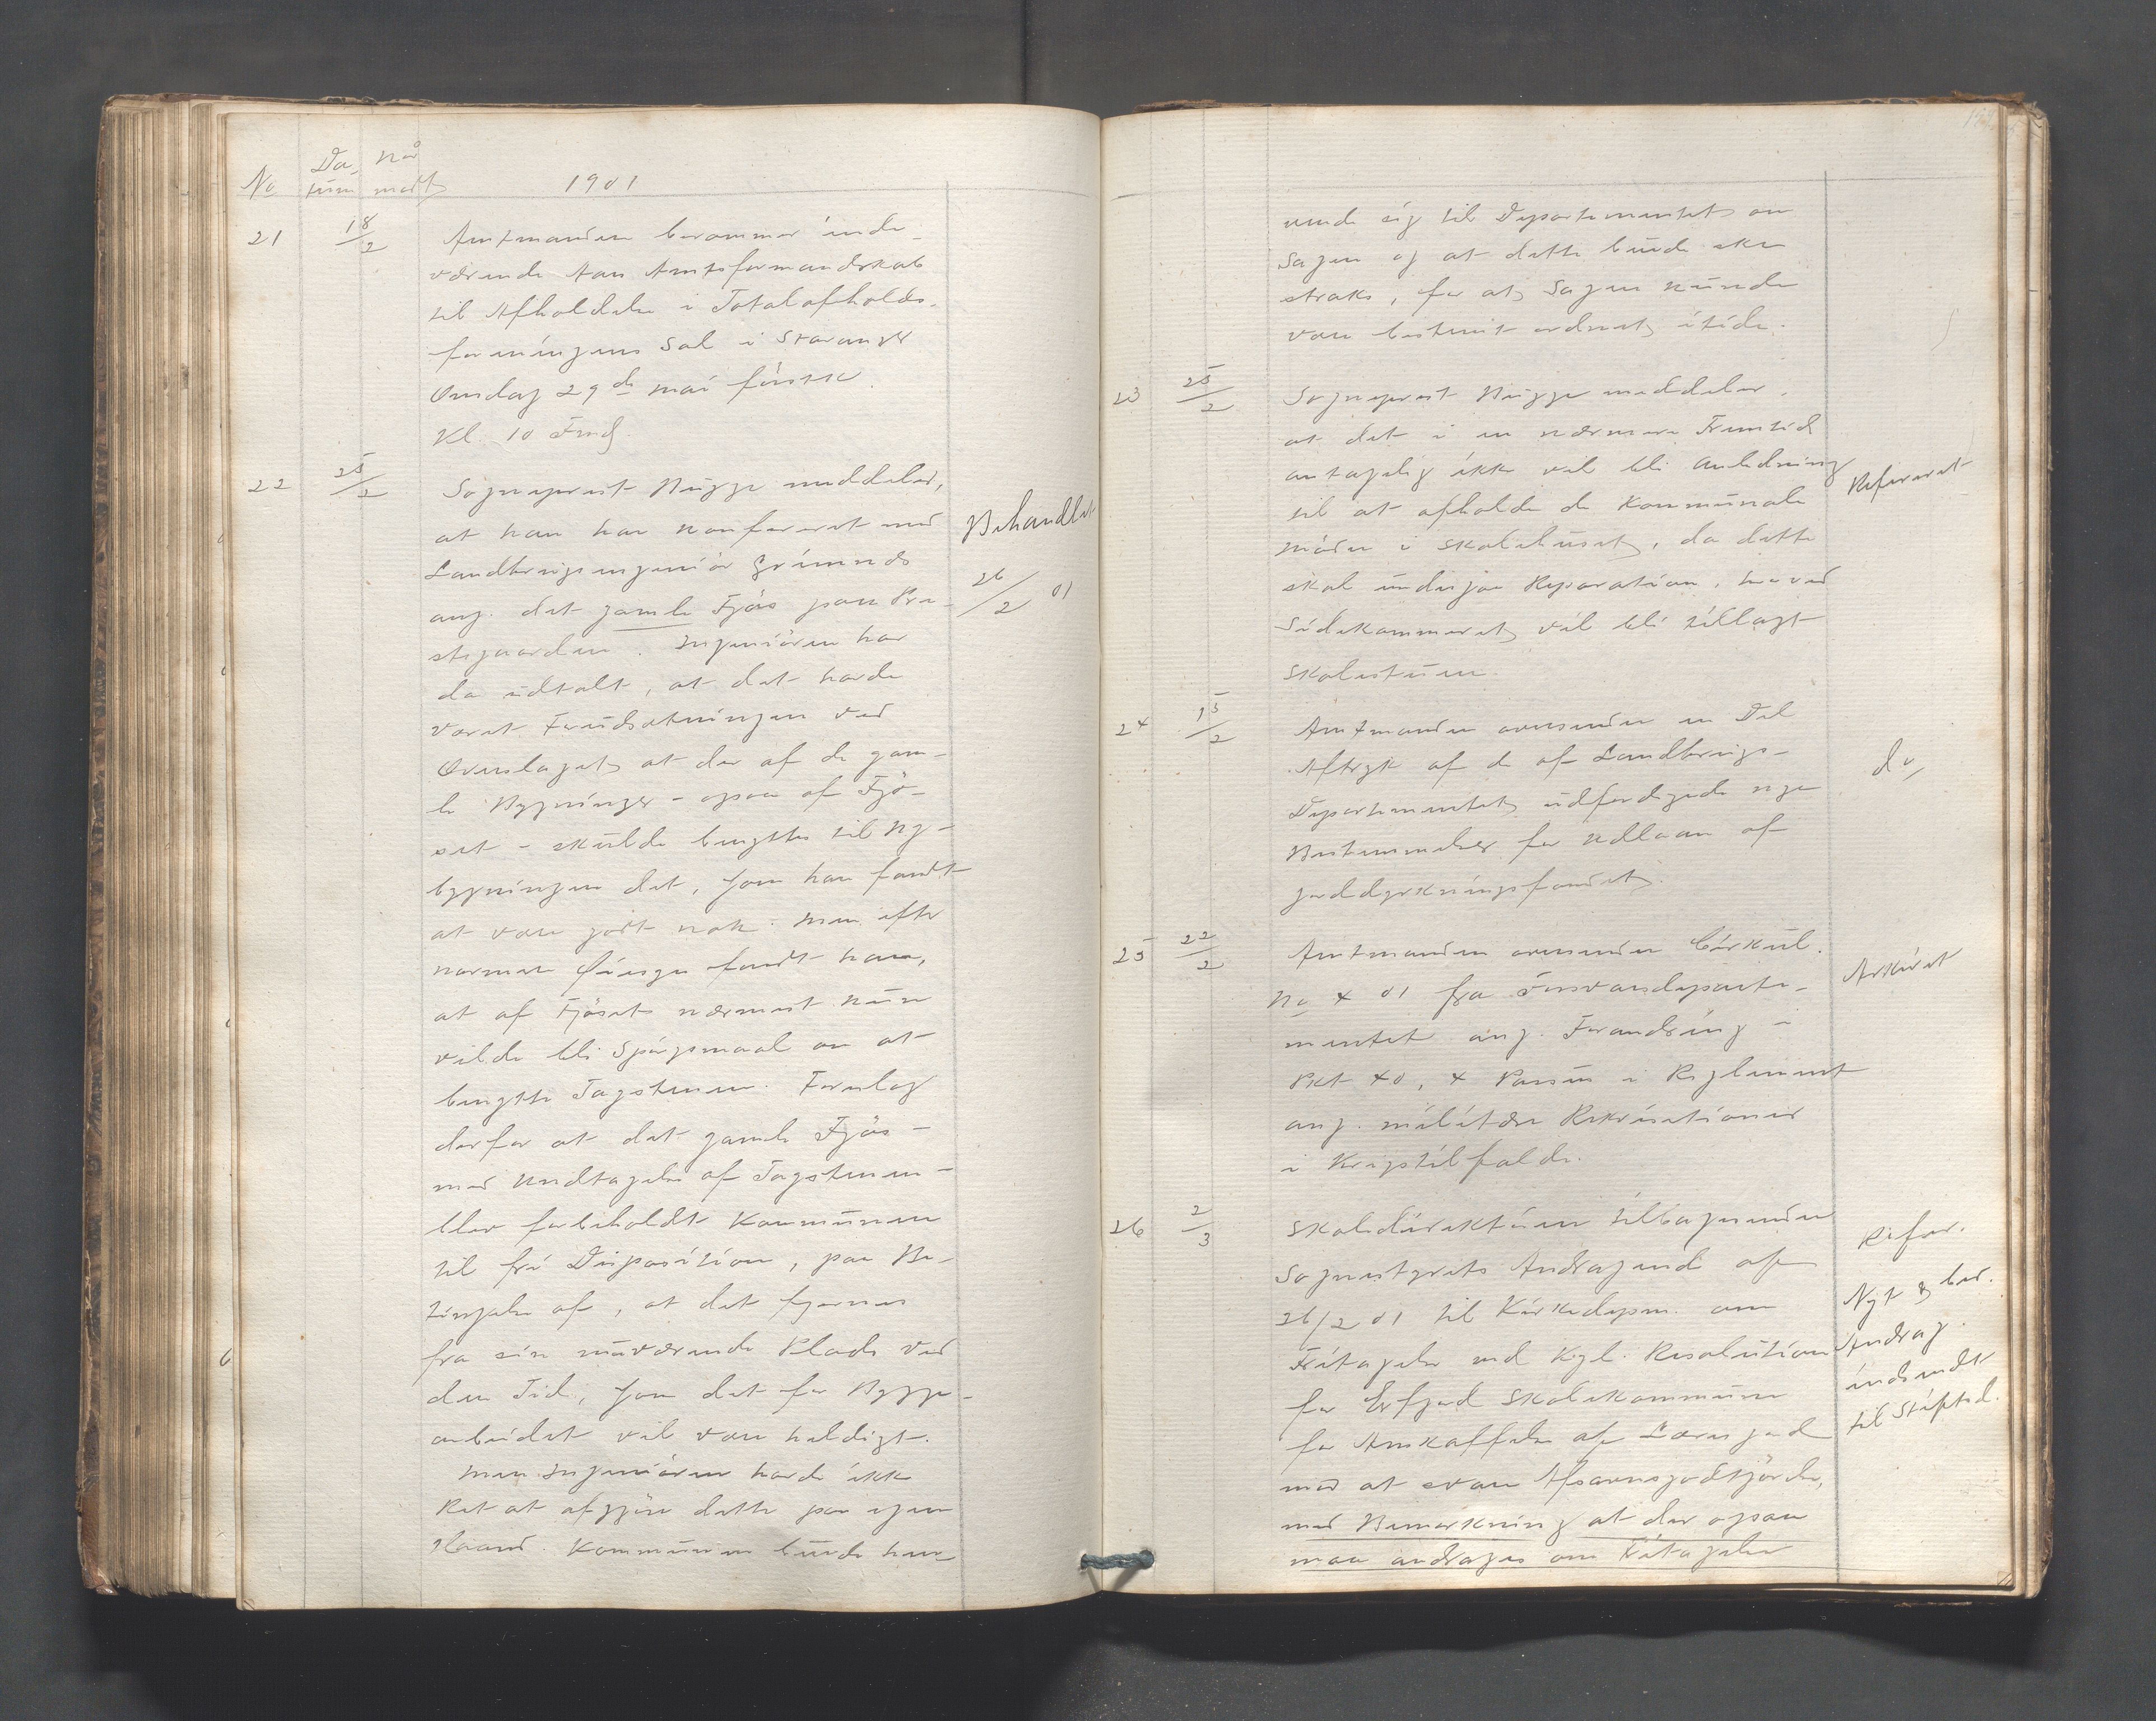 No Da- når
tum modt 1901
21 18/2 Amtmanden berammer inde-
værende Aars Amtsformandskab
til Afholdelse i Totalafholds-
foreningens Sal i Stavanger
Onsdag 29de mai førstk.
Kl. 10 Fmd.
22 25/2 Sogneprest Bugge meddeler,
at han har konfereret med
Landbrugsingeniör Grimnes
ang. det gamle Fjös paa Pre-
stegaarden. Ingeniören har
da udtalt, at det havde
været Forudsætningen ved
Overslaget at der af de gam-
le Bygninger - ogsaa af Fjö-
set - skulde benyttes til Ny-
bygningen det, som han fandt
at være godt nok. Men efter
nærmere Öiesyn fandt han,
at af Fjöset nærmest kun
vilde bli Spörgsmaal om at
benytte Tagstenen. Foreslog
derfor at det gamle Fjös -
med Undtagelse af Tagstenen -
blev forbeholdt Kommunen
til fri Disposition, paa Be-
tingelse af, at det fjernes
fra sin nuværende Plads ved
den Tid, som det for Bygge-
arbeidet vil være heldigt.
Men Ingeniören havde ikke
Ret at afgjöre dette paa egen
Haand. Kommunen burde hen-
Behandlet
26/2 01
vende sig til Departementet om
Sagen og at dette burde ske
straks, for at Sagen kunde
være bestemt ordnet itide.
23 25/2 Sogneprest Bugge meddeler,
at det i en nærmere Fremtid
antagelig ikke vil bli Anledning
til at afholde de Kommunale
möder i Skolehuset, da dette
skal undergaa Reparation, hvorved
Sidekammeret vil bli tillagt
Skolestuen.
Refereret
24 15/2 Amtmanden oversender en Del
Aftryk af de af Landbrugs-
Departementet udferdigede nye
Bestemmelser for Udlaan af
Jorddyrkningsfondet.
do,
25 22/2 Amtmanden oversender Cirkul.
No 4 01 fra Forsvarsdeparte-
mentet ang. Forandring i
Pkt 40, 4 Passus i Reglement
ang. militære Rekvisitioner
i Krigstilfælde.
Arkivet
26 2/3 Skoledirektören tilbagesender
Sognestyrets Andragende af
26/2 01 til Kirkedepm. om
Fritagelse ved Kgl. Resolution
for Erfjord Skolekommune
for Anskaffelse af Lærerjord
med at svare Afsavnsgodtgörelse,
med Bemerkning at der ogsaa
maa andrages om Fritagelse
Refer.
Nyt &
Andrag.
indsendt
til Stiftsd.